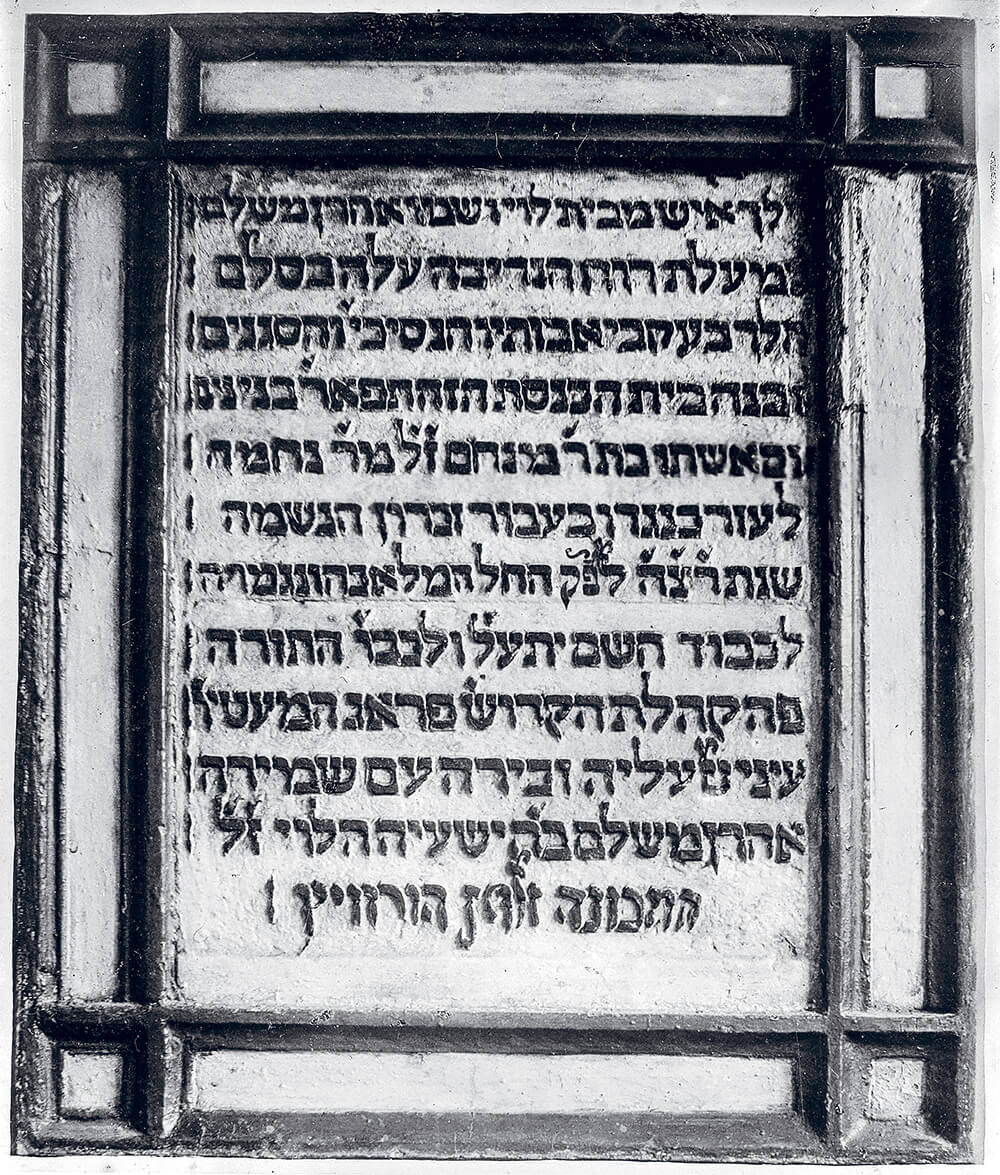 לך איש מבית לוי ושמו אהרן משלם
במעלת רוח הנדיבה עלה בסלם
הלך בעקבי אבותיו הנסיכי׳ והסגנים
ובנה בית הכנסת הזה תפאר׳ בניינם
ואשתו בת ר׳ מנחם ז״ל מר׳ נחמה
לעזר כנגדו בעבור זכרון הנשמה
שנת רצ״ה לפ״ק החל המלאכה ונגמרה
לכבוד השם ית׳ע׳ל׳ ולכבו׳ התורה
פה קהלת הקדוש פראג המעטי׳
עיניני׳ עליה ובירה עם שמירה
אהרן משלם בה״ר ישעיה הלוי ז״ל
המכונה זלמן הורוויץ